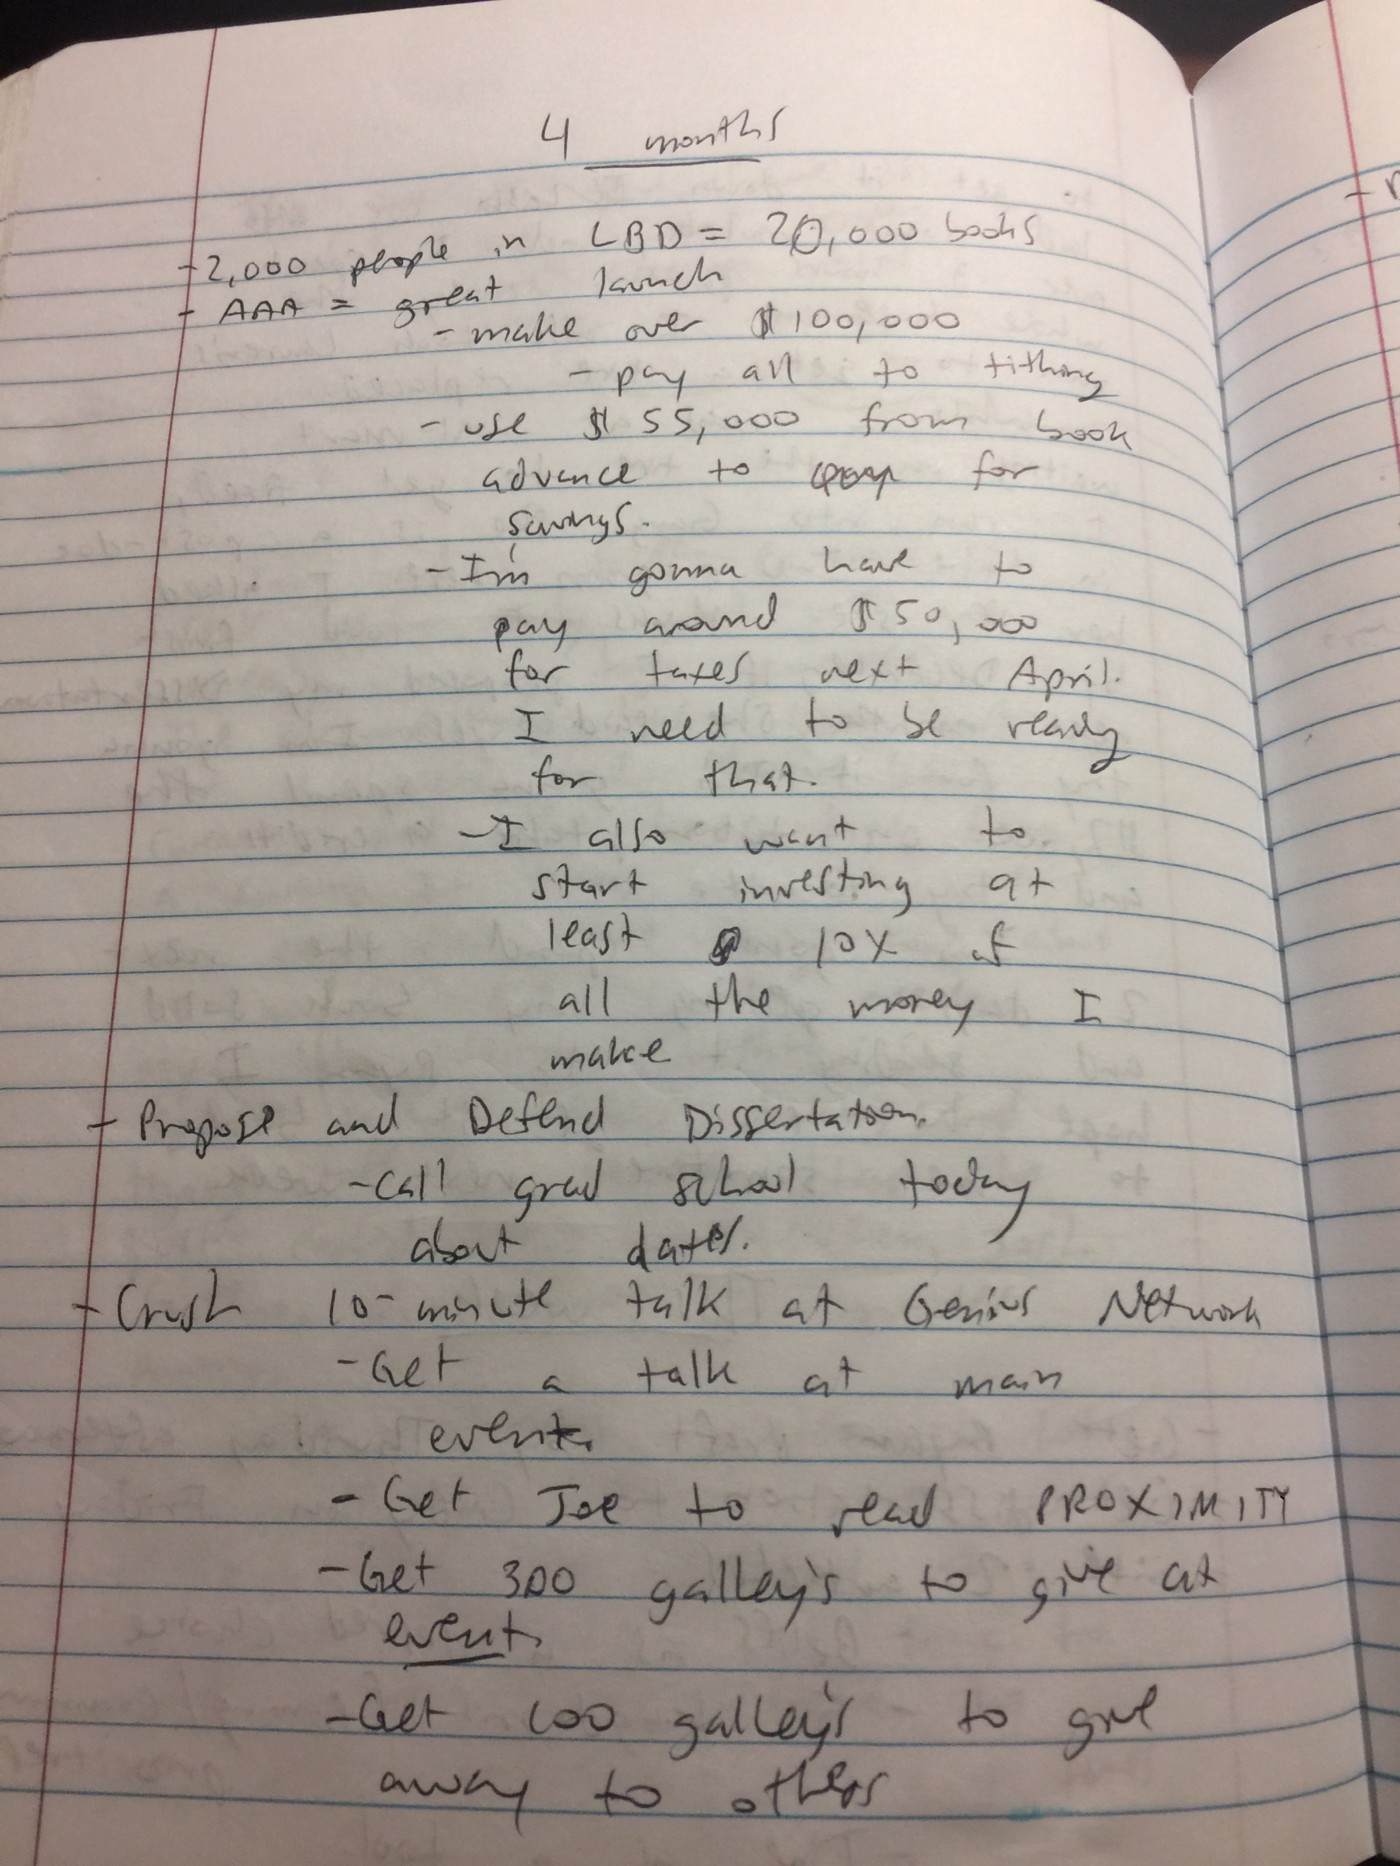 4 months
- 2,000 people in LBD = 20,000 books
- AAA = great launch
- make over $100,000
- pay all to tithing
- use $55,000 from book
advance to for
savings.
- I'm gonna have to
pay around $50,000
for taxes next April.
I need to be ready
for that.
- I also want to
start investing at
least 10X of
all the money I
make
- Propose and Defend Dissertation.
- call grad school today
about dates.
- Crush 10-minute talk at Genius Network
- Get a talk at main
event.
- Get Joe to read PROXIMITY
- Get 300 galley's to give at
event.
- Get 100 galley's to give
away to others